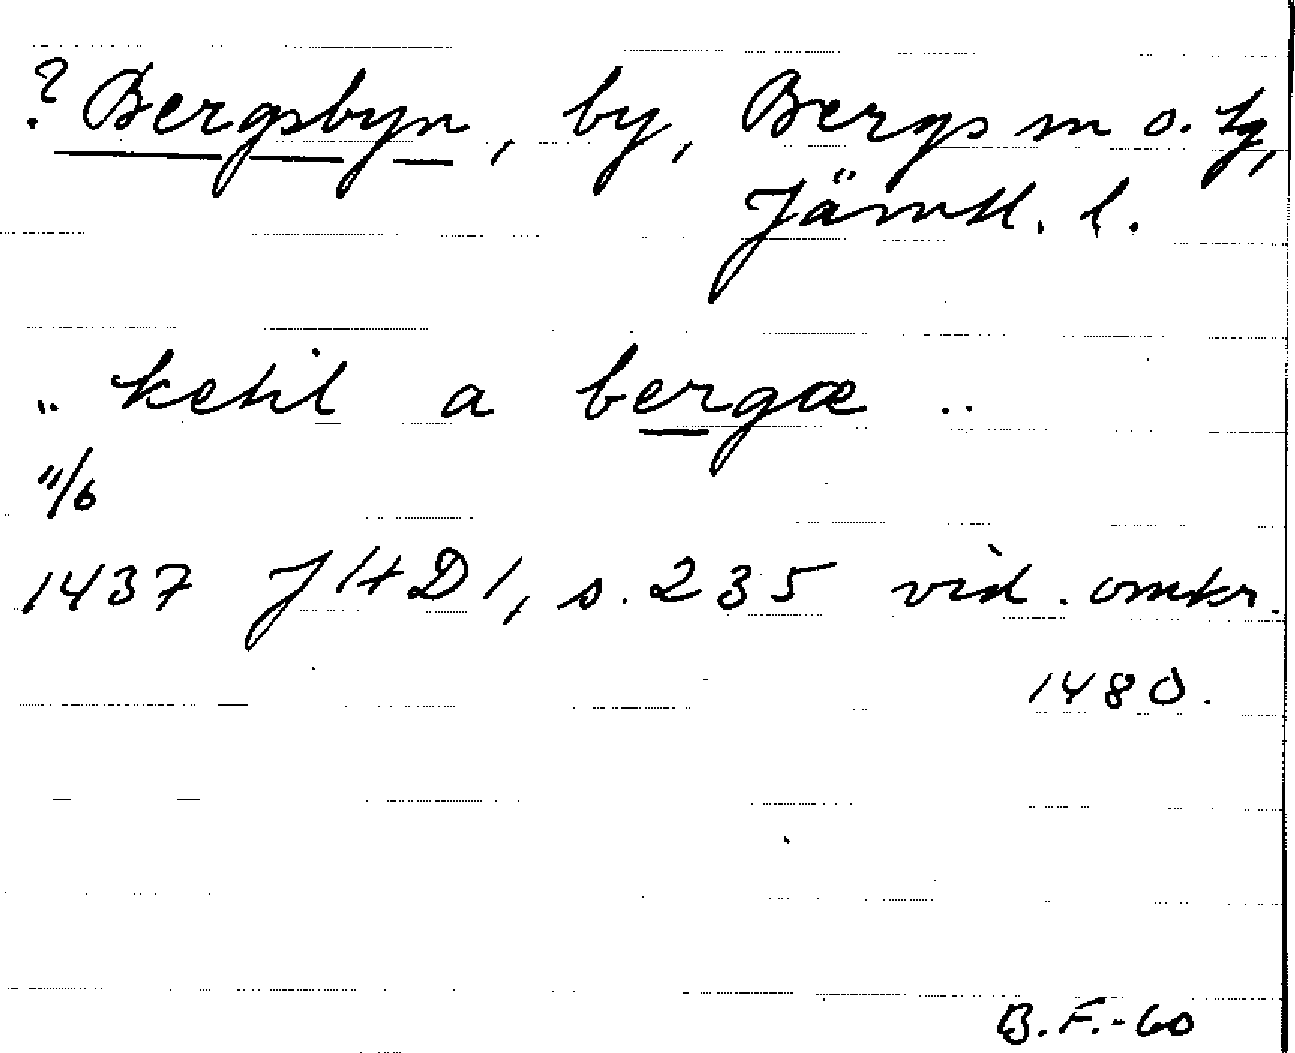 ? Bergsbyn, by, Bergs sn o. tg,
Jämtl. l.
.. ketil a bergæ ..
11/6
1437 JHD 1, s. 235 vid. omkr.
1480.
B.F.-60